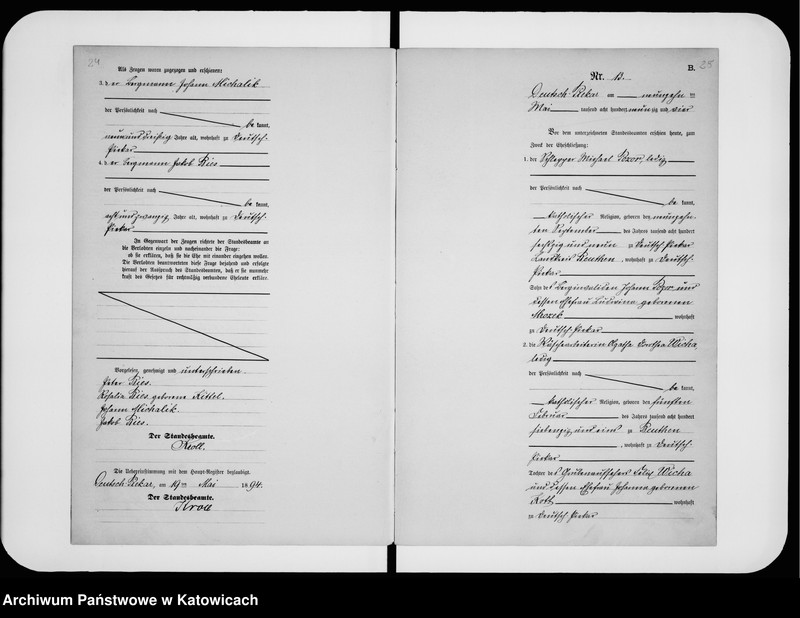 24
Als Zeugen waren zugezogen und erschienen:
3. der Bergmann Johann Michalik
der Persönlichkeit nach
be kannt,
neununddreißig Jahre alt, wohnhaft zu Deutsch-
Piekar
4. der Bergmann Jakob Kies
der Persönlichkeit nach
be kannt,
achtundzwanzig Jahre alt, wohnhaft zu Deutsch-
Piekar
In Gegenwart der Zeugen richtete der Standesbeamte an
die Verlobten einzeln und nacheinander die Frage:
ob sie erklären, daß sie die Ehe mit einander eingehen wollen.
Die Verlobten beantworteten diese Frage bejahend und erfolgte
hierauf der Ausspruch des Standesbeamten, daß er sie nunmehr
kraft des Gesetzes für rechtmäßig verbundene Eheleute erkläre.
Vorgelesen, genehmigt und unterschrieben
Peter Kies.
Rosalie Kies geborene Kittel.
Johann Michalik.
Jakob Kies.
Der Standesbeamte.
Kroll.
Die Uebereinstimmung mit dem Haupt-Register beglaubigt.
Deutsch Piekar, am 19ten Mai 1894.
Der Standesbeamte.
Kroll
B.
25
Nr. 13.
Deutsch Piekar am neunzehnten
Mai tausend acht hundert neunzig und vier
Vor dem unterzeichneten Standesbeamten erschienen heute, zum
Zweck der Eheschließung:
1. der Schlepper Michael, ledig
der Persönlichkeit nach
be kannt,
katholischer Religion, geboren den neunzehn-
ten September des Jahres tausend acht hundert
sechzig und neun zu Deutsch Piekar
Landkreis Beuthen, wohnhaft zu Deutsch-
Piekar
Sohn des Berginvaliden Johann und
dessen Ehefrau Ludwina geborenen
wohnhaft
zu Deutsch-Piekar
2. die Wäschearbeiterin Agathe Dorothea Wicha,
ledig
der Persönlichkeit nach
be kannt,
katholischer Religion, geboren den fünften
Februar des Jahres tausend acht hundert
siebenzig und eins zu Beuthen
, wohnhaft zu Deutsch-
Piekar
Tochter des Grubenaufsehers Felix Wicha
und dessen Ehefrau Johanna geborenen
Kott wohnhaft
zu Deutsch-Piekar
Archiwum Państwowe w Katowicach